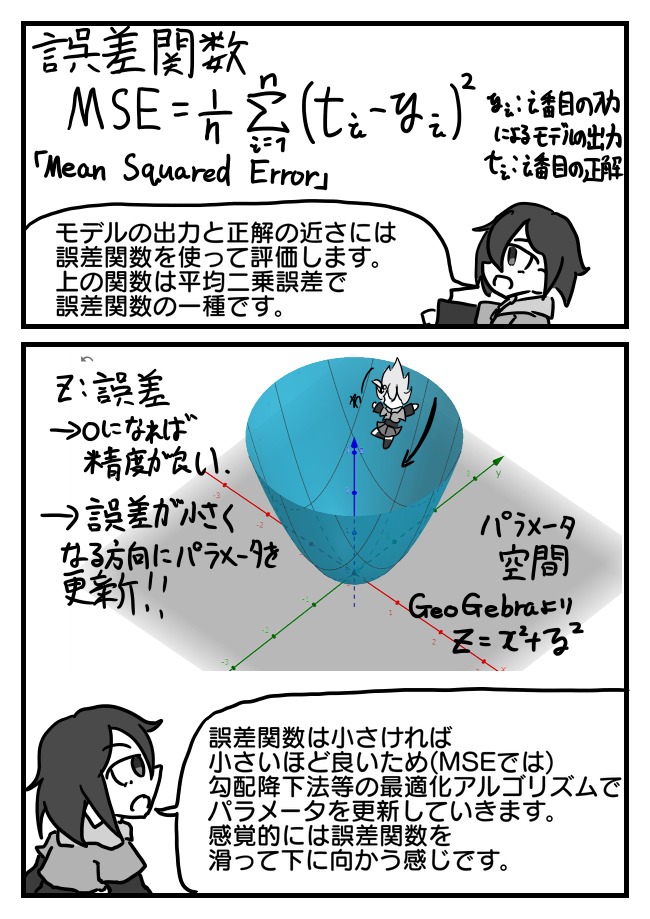 誤差関数
MSE = 1/n Σ(i=1→n) (tᵢ-yᵢ)²
yᵢ:i番目の入力
によるモデルの出力
tᵢ:i番目の正解
「Mean Squared Error」
モデルの出力と正解の近さには
誤差関数を使って評価します。
上の関数は平均二乗誤差で
誤差関数の一種です。
Z:誤差
→0になれば
精度が良い.
→誤差が小さく
なる方向にパラメータを
更新!!
パラメータ
空間
GeoGebraより
Z=x²+y²
y
x
-3
-2
-1
1
2
-2
-3
誤差関数は小さければ
小さいほど良いため(MSEでは)
勾配降下法等の最適化アルゴリズムで
パラメータを更新していきます。
感覚的には誤差関数を
滑って下に向かう感じです。